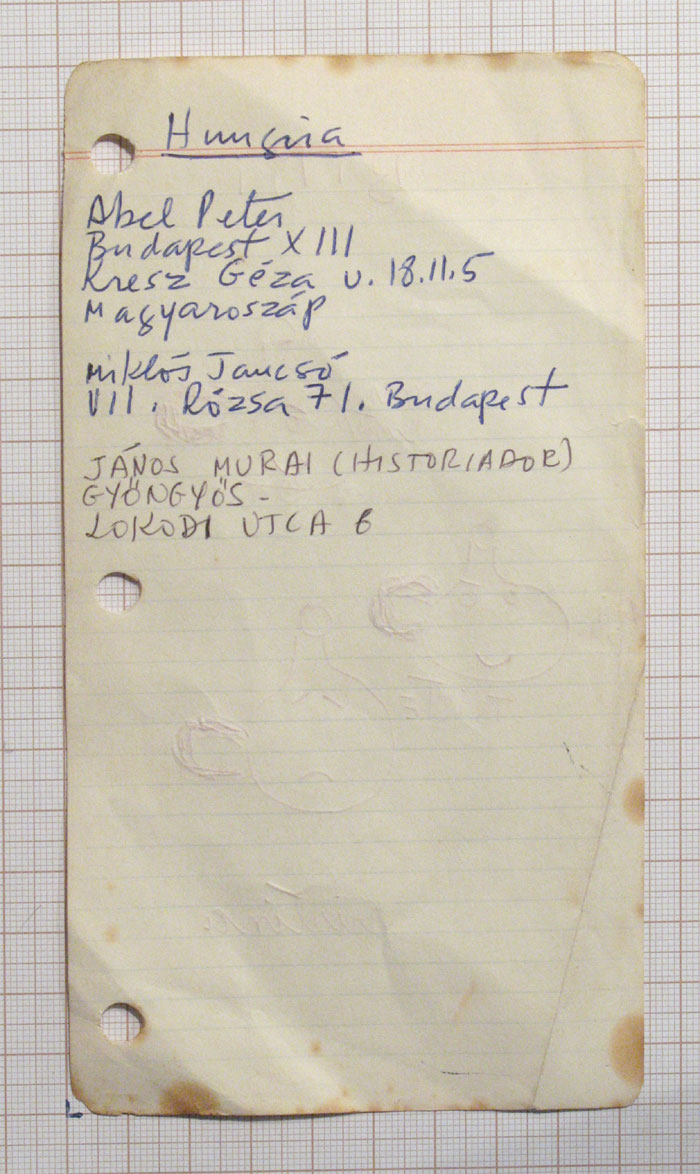 Hungria
Abel Peter
Budapest XIII
Kresz Géza u. 18.11.5
Magyaroszáp
Miklós Jancsó
VII. Rózsa 71. Budapest
JÁNOS MURAI (HISTORIADOR)
GYÖNGYÖS -
LOKODI UTCA 6